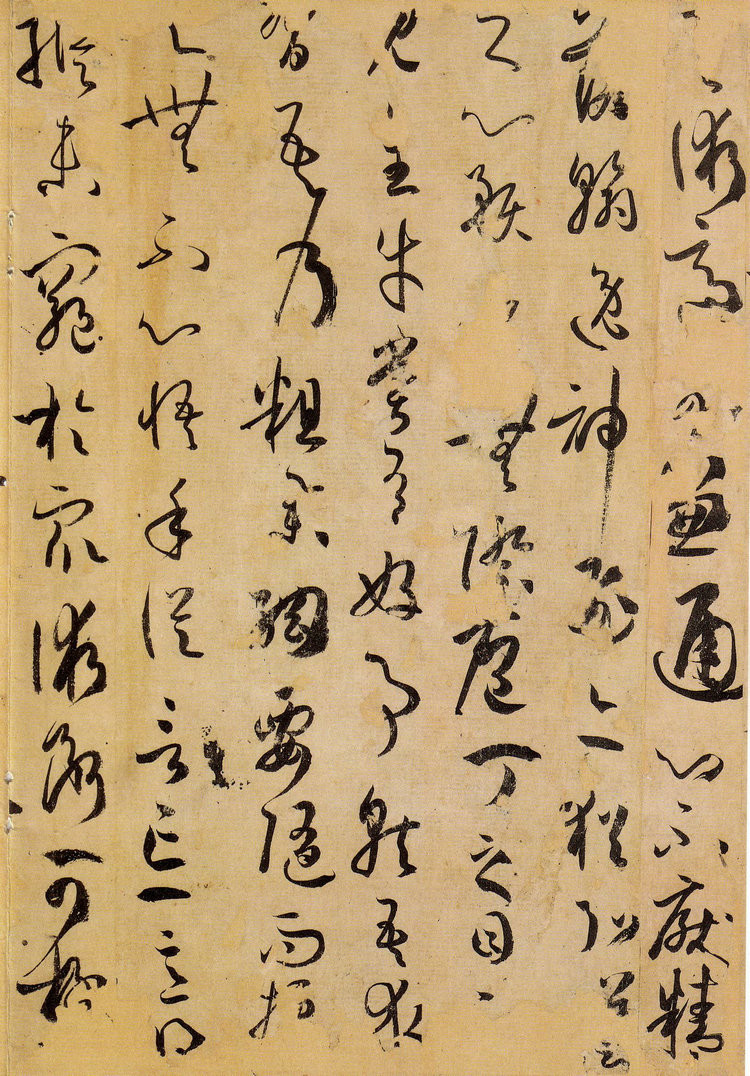 兼通心不厭精
落翰逸神飛亦猶弘羊
之心預乎無際庖丁之目不
見全牛嘗有好事就吾求
習吾乃粗舉綱要隨而授
之無不心悟手從言忘意得
縱未窮於眾術斷可極